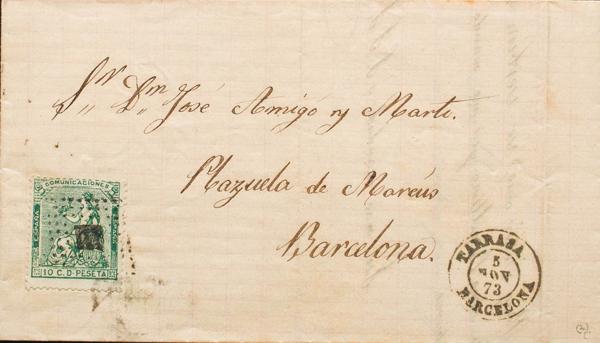 Sr. Dn. José Amigó y Marti.
Plazuela de Marcús
Barcelona.
COMUNICACIONES
ESPAÑA
ESPAÑA
10 C. D PESETA
TARRASA
5
NOV
73
BARCELONA